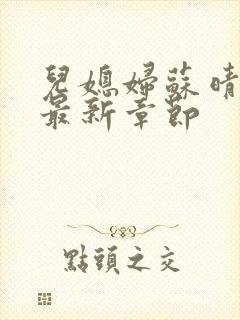 兒媳婦蘇晴
最新章節
點頭之交